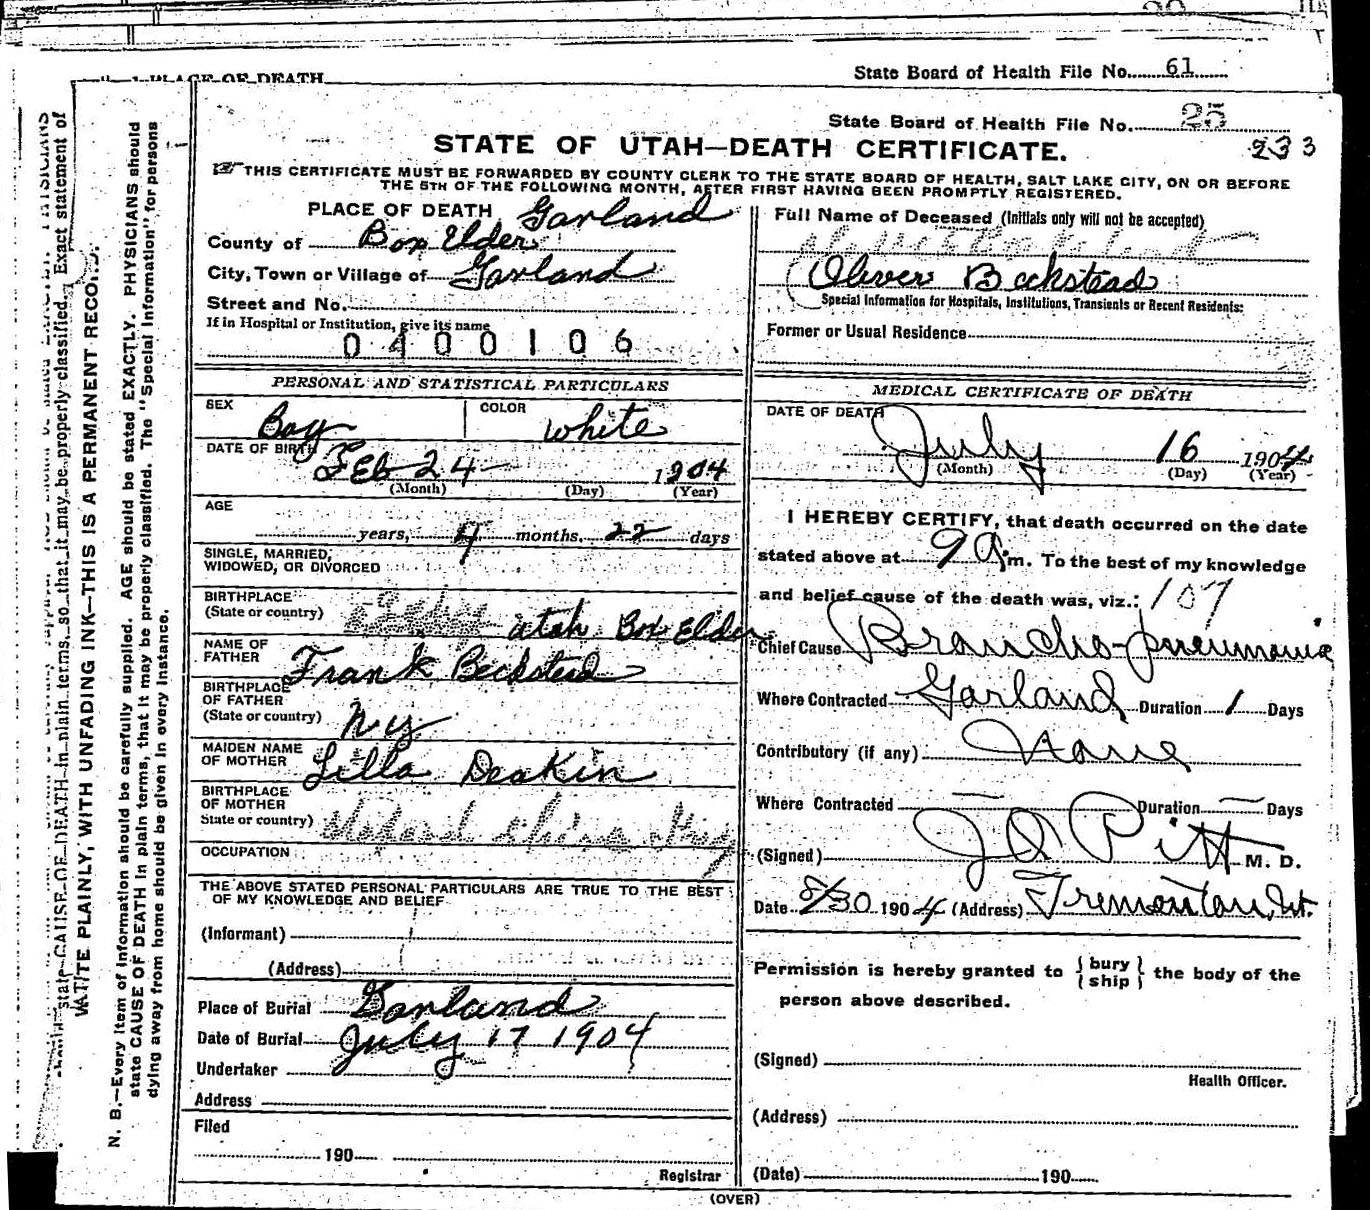 1 PLACE OF DEATH
State Board of Health File No. 61
State Board of Health File No. 25
STATE OF UTAH—DEATH CERTIFICATE.
233
THIS CERTIFICATE MUST BE FORWARDED BY COUNTY CLERK TO THE STATE BOARD OF HEALTH, SALT LAKE CITY, ON OR BEFORE
THE 5TH OF THE FOLLOWING MONTH, AFTER FIRST HAVING BEEN PROMPTLY REGISTERED.
PLACE OF DEATH Garland
County of Box Elder
City, Town or Village of Garland
Street and No.
If in Hospital or Institution, give its name
0400106
PERSONAL AND STATISTICAL PARTICULARS
SEX Boy COLOR white
DATE OF BIRTH Feb 24 1904
(Month) (Day) (Year)
AGE
years, 4 months, 22 days
SINGLE, MARRIED,
WIDOWED, OR DIVORCED
BIRTHPLACE
(State or country) utah Box Elder
NAME OF
FATHER Frank Beckstead
BIRTHPLACE
OF FATHER
(State or country)
MAIDEN NAME
OF MOTHER Lilla Deakin
BIRTHPLACE
OF MOTHER
State or country)
OCCUPATION
THE ABOVE STATED PERSONAL PARTICULARS ARE TRUE TO THE BEST
OF MY KNOWLEDGE AND BELIEF
(Informant)
(Address)
Place of Burial Garland
Date of Burial July 17 1904
Undertaker
Address
Filed
190
Registrar
Full Name of Deceased (Initials only will not be accepted)
Oliver Beckstead
Special Information for Hospitals, Institutions, Transients or Recent Residents:
Former or Usual Residence
MEDICAL CERTIFICATE OF DEATH
DATE OF DEATH
July 16 1904
(Month) (Day) (Year)
I HEREBY CERTIFY, that death occurred on the date
stated above at 9 a.m. To the best of my knowledge
and belief cause of the death was, viz.: 107
Chief Cause Broncho-pneumonia
Where Contracted Garland Duration 1 Days
Contributory (if any) None
Where Contracted — Duration — Days
(Signed) J A Pitt M. D.
Date 8/30 1904 (Address) Tremonton, Ut.
Permission is hereby granted to { bury
ship } the body of the
person above described.
(Signed)
Health Officer.
(Address)
(Date) 190
(OVER)
N. B.—Every item of information should be carefully supplied. AGE should be stated EXACTLY. PHYSICIANS should
state CAUSE OF DEATH in plain terms, that it may be properly classified. The "Special Information" for persons
dying away from home should be given in every instance.
WRITE PLAINLY, WITH UNFADING INK—THIS IS A PERMANENT RECORD.
state CAUSE OF DEATH in plain terms, so that it may be properly classified. Exact statement of